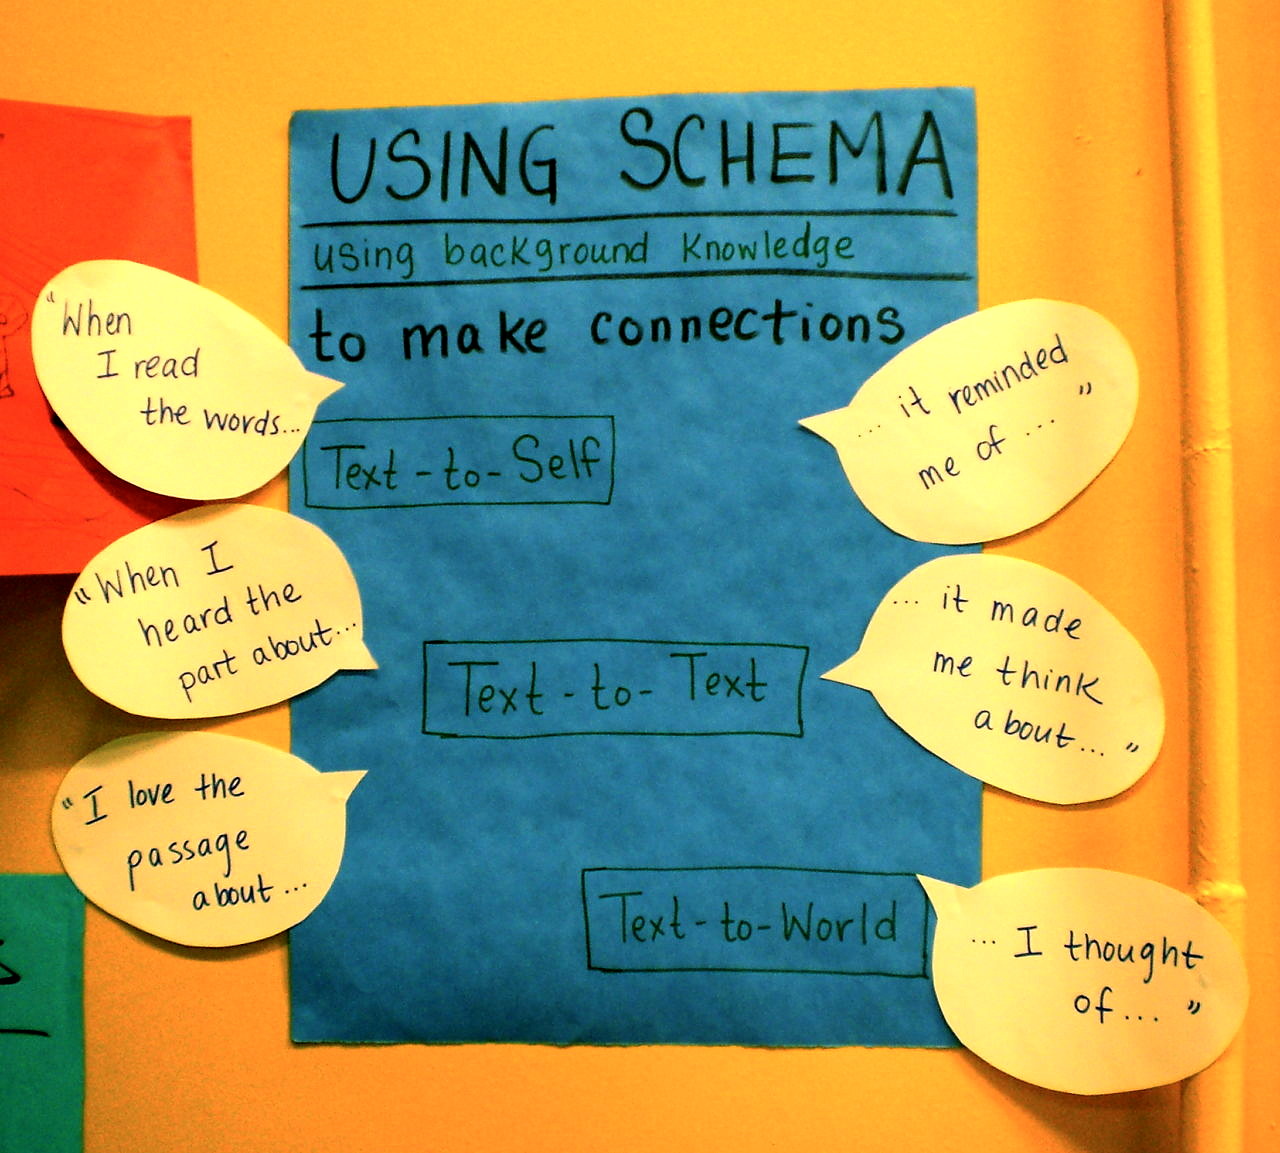 USING SCHEMA
using background knowledge
to make connections
"When
I read
the words...
... it reminded
me of ... "
Text-to-Self
"When I
heard the
part about...
... it made
me think
about... "
Text-to-Text
"I love the
passage
about ...
Text-to-World
... I thought
of ... "